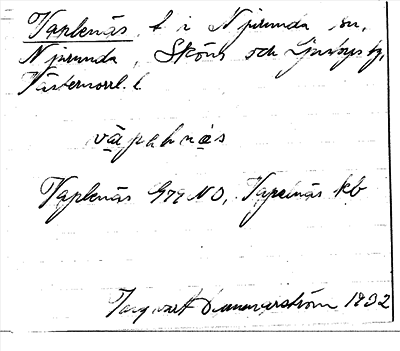 Vaplenäs, t. i Njurunda sn,
Njurunda, Sköns och Ljustorps tg,
Västernorrl. l.
väpalnäs
Vaplenäs G79 NO, Vapelnäs kb
Torgvart Dunnerström 1932